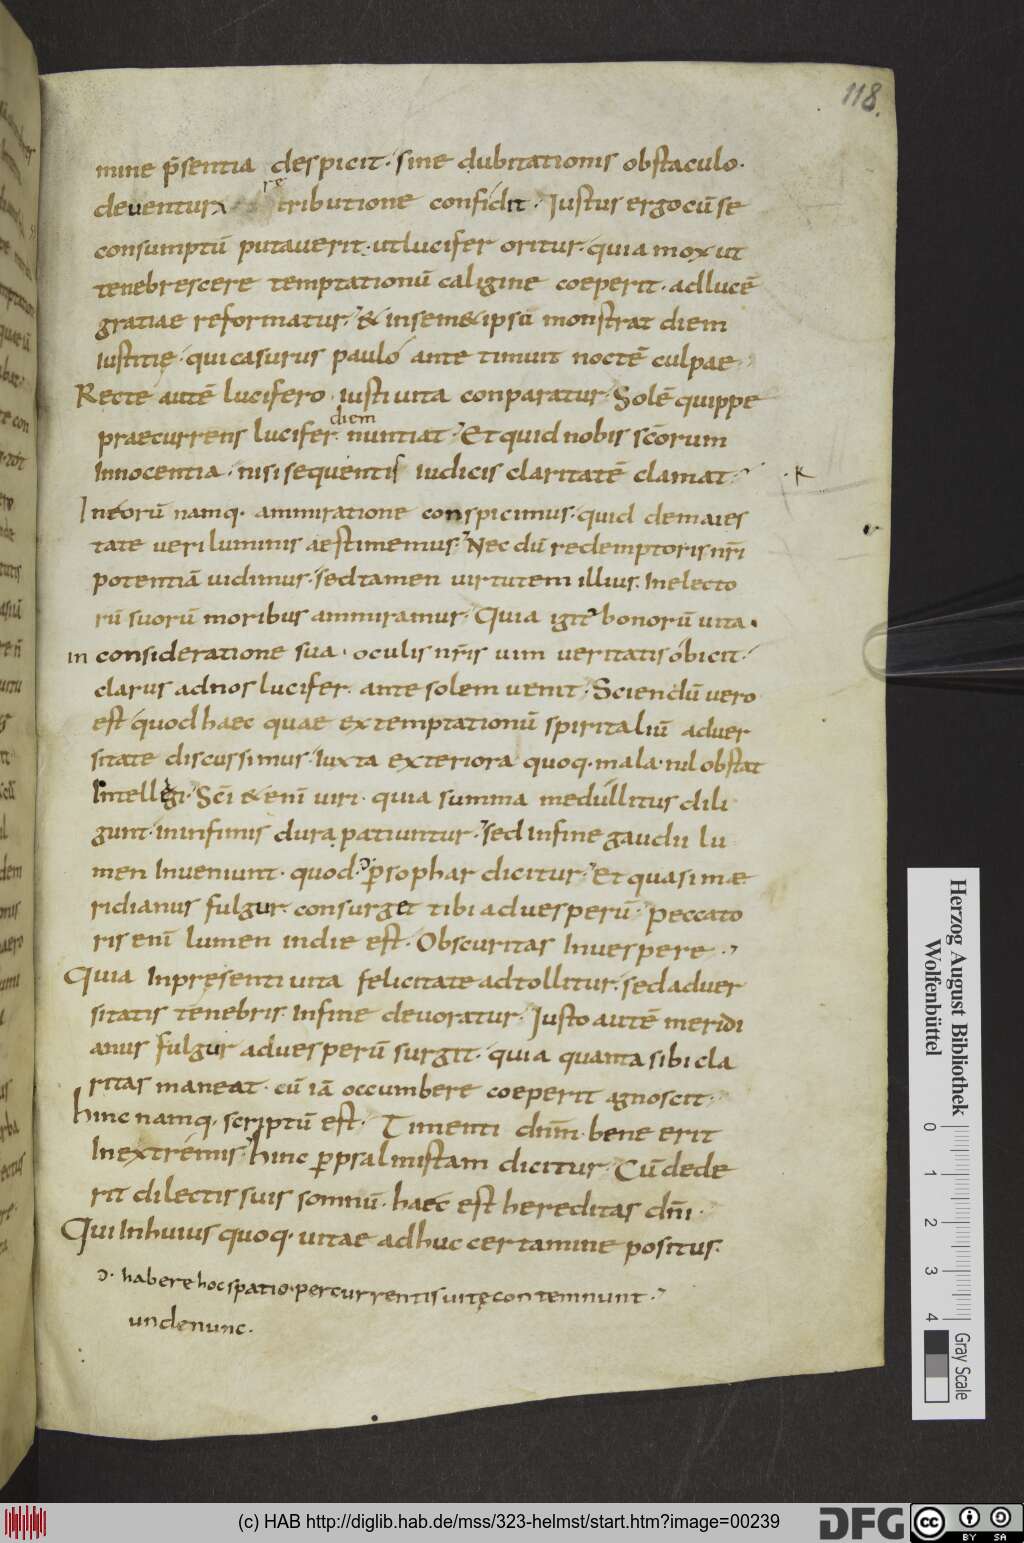 118.
mine p̄sentia despicit. sine dubitationis obstaculo.
deventura retributione confidit. Iustus ergo cū se
consumptū putaverit. ut lucifer oritur. quia mox ut
tenebrescere temptationū caligine coeperit. ad lucē
gratiae reformatur. & in sem&ipsū monstrat diem
iustitię. qui casurus paulo ante timuit noctē culpae.
Recte autē lucifero. iusti vita conparatur. Solē quippe
praecurrens lucifer. diem nuntiat. Et quid nobis scōrum
Innocentia. nisi sequentis iudicis claritatē clamat.
In eorū namq. ammiratione conspicimus. quid de maies
tate veri luminis aestimemus. Nec dū redemptoris nr̄i
potentiā vidimus. sed tamen virtutem illius. In electo
rū suorū moribus ammiramur. Quia igit̄ bonorū vita.
in consideratione sua. oculis nr̄is vim veritatis obicit.
clarus ad nos lucifer. ante solem venit. Sciendū vero
est quod haec quae ex temptationū spiritaliū adver
sitate discussimus. Iuxta exteriora quoq. mala. nil obstat
Intellegi. Scī & enī viri. quia summa medullitus dili
gunt. in infimis dura patiuntur. sed in fine gaudii lu
men Inveniunt. quod. p̄ sophar dicitur. Et quasi mæ
ridianus fulgur. consurget tibi ad vesperū. Peccato
ris enī lumen in die est. Obscuritas In vespere.
Quia In presenti vita felicitate adtollitur. sed adver
sitatis tenebris. In fine devoratur. Iusto autē meridi
anus fulgur ad vesperū surgit. quia quanta sibi cla
ritas maneat. cū iā occumbere coeperit agnoscit.
hinc namq. scriptū est. Timenti dn̄m. bene erit
In extremis. hinc p psalmistam dicitur. Cū dede
rit dilectis suis somnū. haec est hereditas dn̄i.
Qui In huius quoq. vitae adhuc certamine positus.
habere hoc spatio. percurrentis vitę contemnunt.
unde nunc.
Herzog August Bibliothek
Wolfenbüttel
0 1 2 3 4
Gray Scale
(c) HAB http://diglib.hab.de/mss/323-helmst/start.htm?image=00239
DFG
cc BY SA